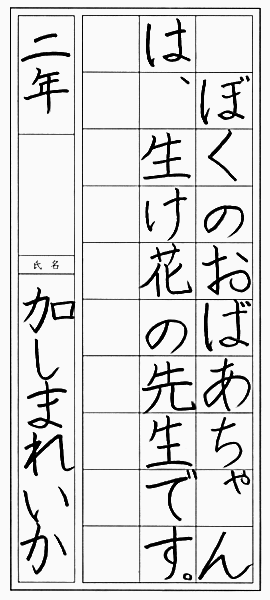 ぼくのおばあちゃん
は、生け花の先生です。
二年
氏名
加しまれいか